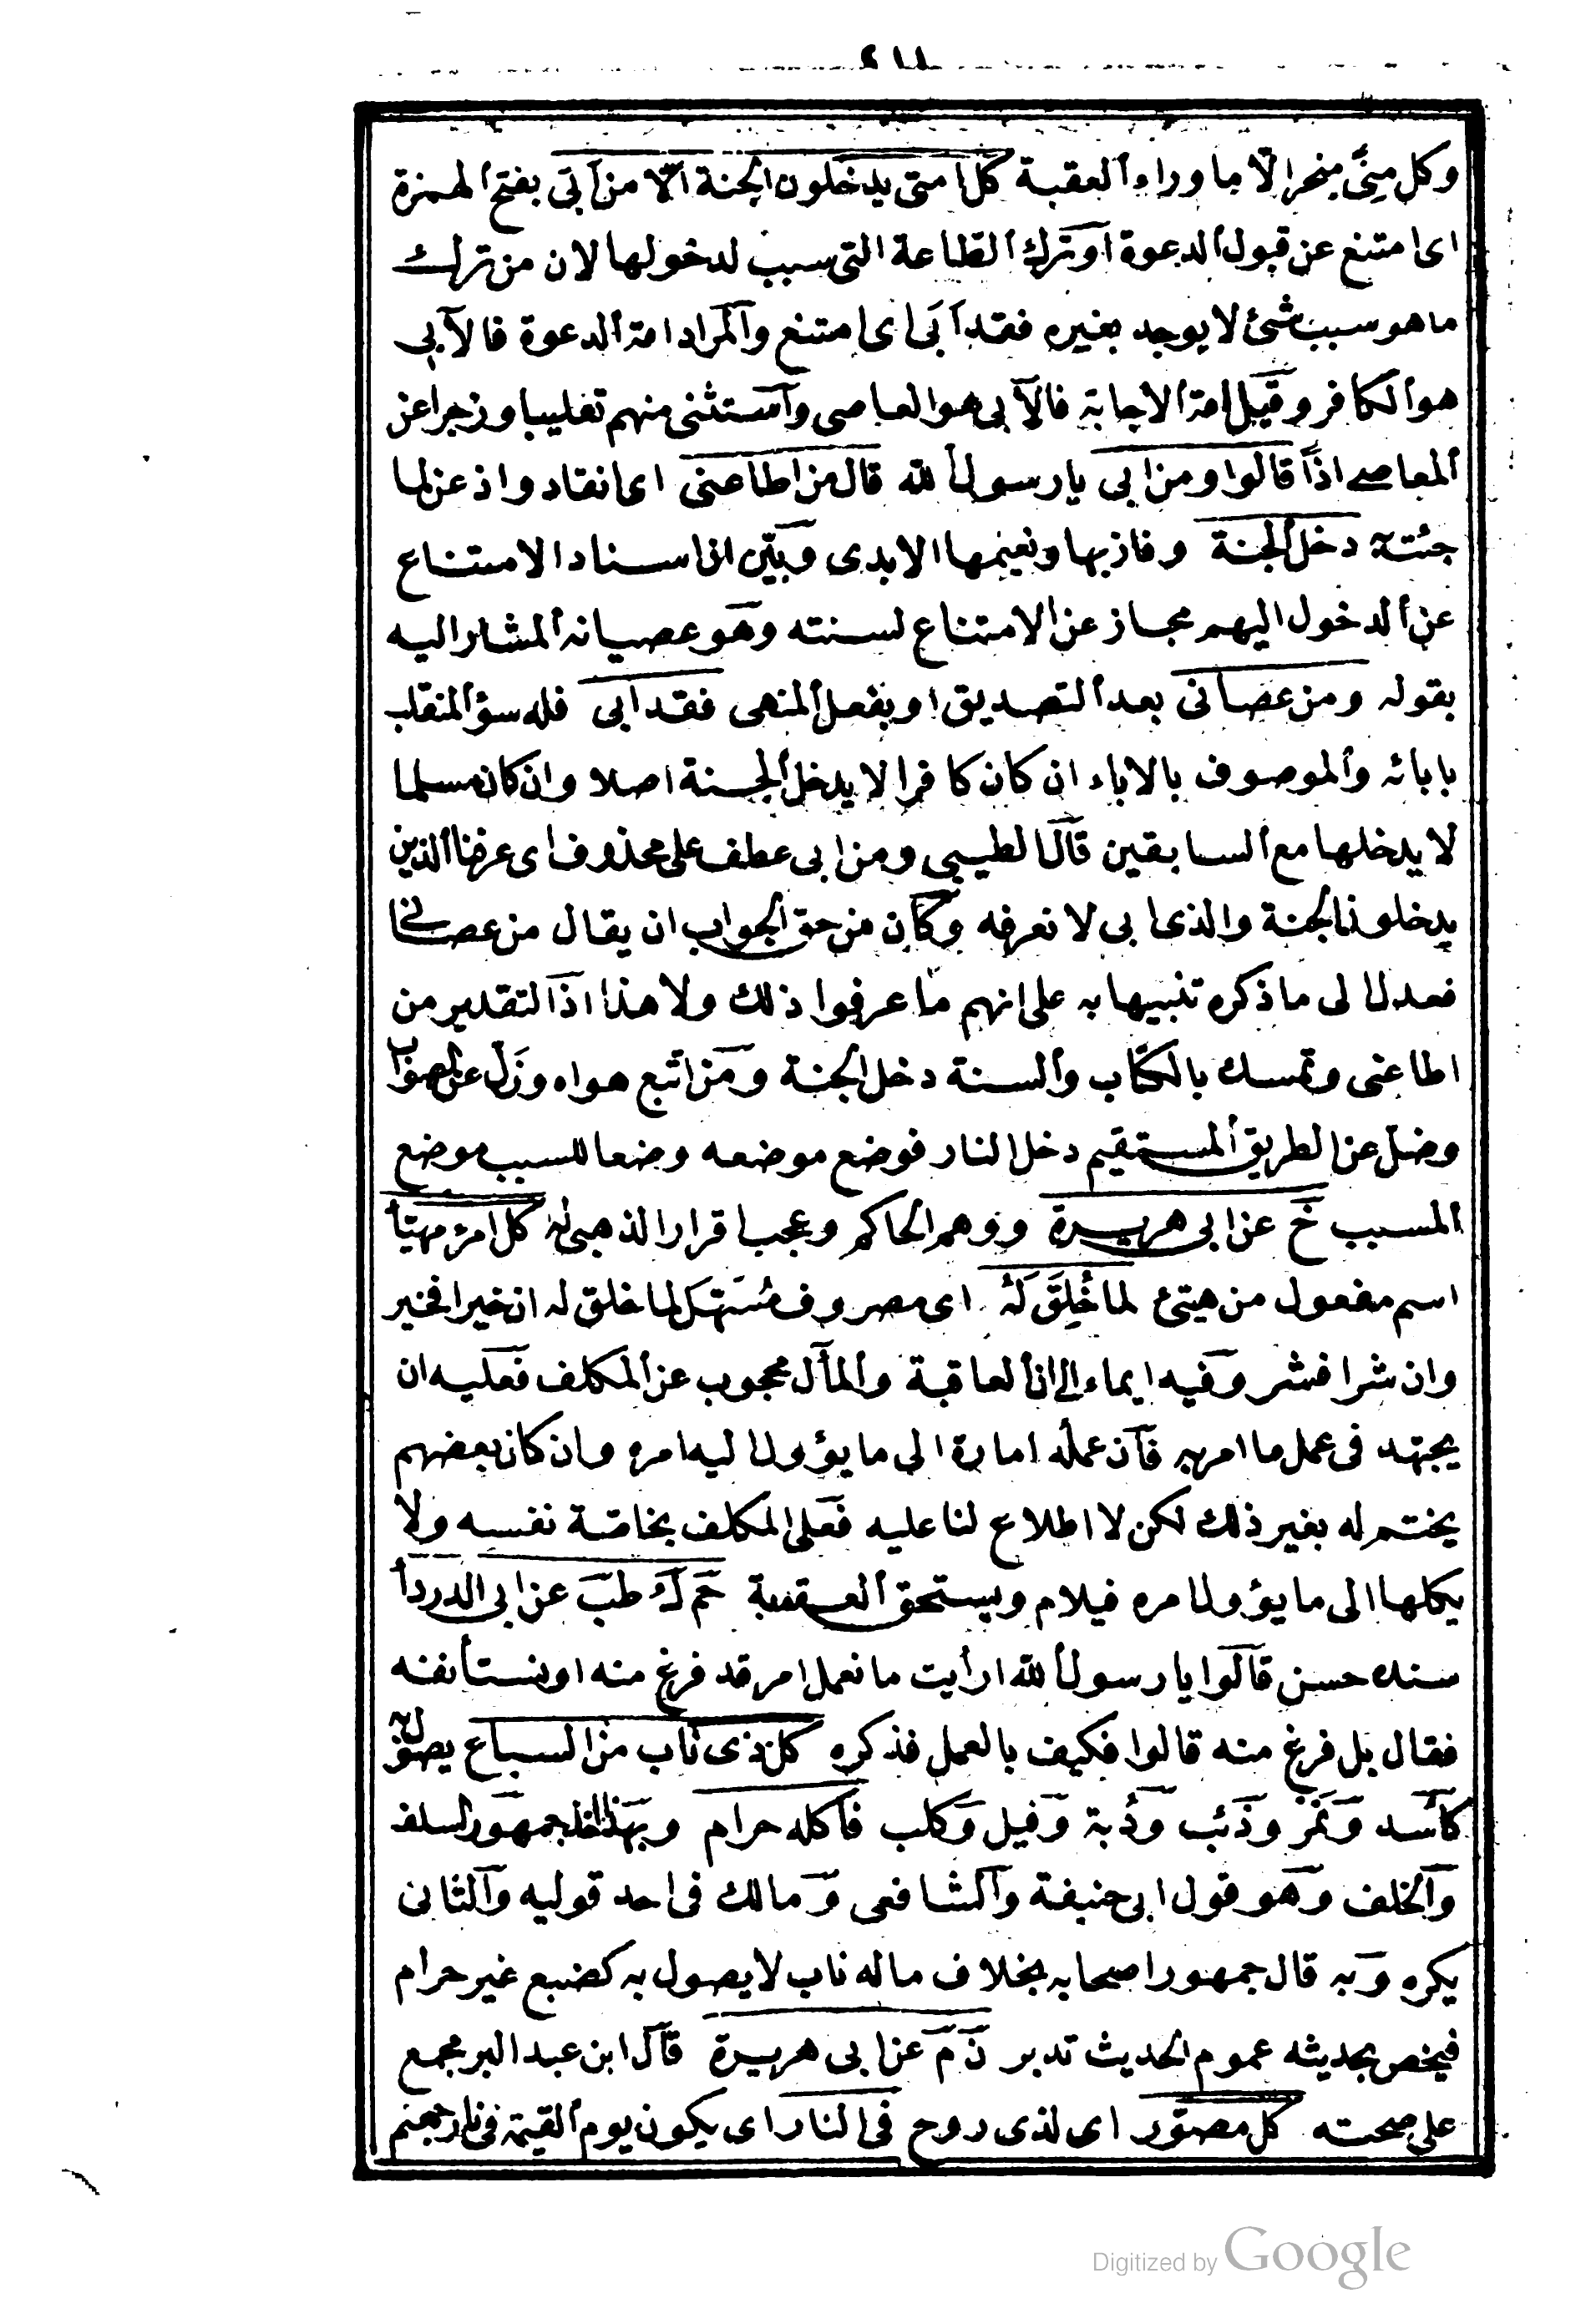 ٤١١
وكل منى منحر الا ما وراء العقبة كل امتى يدخلون الجنة الا من أبى بفتح الهمزة
اى امتنع عن قبول الدعوة او ترك الطاعة التى سبب لدخولها لان من ترك
ما هو سبب شئ لا يوجد بغيره فقد أبى اى امتنع والمراد امة الدعوة فالآبى
هو الكافر وقيل امة الاجابة فالآبى هو العاصى واستثنى منهم تغليبا وزجرا عن
المعاصى اذا قالوا ومن ابى يا رسول الله قال من اطاعنى اى انقاد واذعن لما
جئته دخل الجنة وفاز بها ونعيمها الابدى وبين ان اسناد الامتناع
عن الدخول اليهم مجاز عن الامتناع لسنته وهو عصيانه المشار اليه
بقوله ومن عصانى بعد التصديق او بفعل المنهى فقد ابى فله سؤ المنقلب
بابائه والموصوف بالاباء ان كان كافرا لا يدخل الجنة اصلا وان كان مسلما
لا يدخلها مع السابقين قال الطيبى ومن ابى عطف على محذوف اى عرفنا الذين
يدخلون الجنة والذى ابى لا نعرفه وكان من حق الجواب ان يقال من عصانى
فعدل الى ما ذكره تنبيها به على انهم ما عرفوا ذلك ولا هذا اذ التقدير من
اطاعنى وتمسك بالكتاب والسنة دخل الجنة ومن اتبع هواه وزل عن الصواب
وضل عن الطريق المستقيم دخل النار فوضع موضعه وضعا للسبب موضع
المسبب خ عن ابى هريرة ووهم الحاكم وعجب اقرار الذهبى له كل امرء مهيأ
اسم مفعول من هيئ لما خلق له اى مصروف مسهل لما خلق له ان خيرا فخير
وان شرا فشر وفيه ايماء الى ان العاقبة والمآل محجوب عن المكلف فعليه ان
يجتهد فى عمل ما امر به فان عمله امارة الى ما يؤول اليه امره وان كان بعضهم
يختم له بغير ذلك لكن لا اطلاع لنا عليه فعلى المكلف بخاصة نفسه ولا
يكلها الى ما يؤول امره فيلام ويستحق العقوبة حم ك طب عن ابى الدردأ
سنده حسن قالوا يا رسول الله ارأيت ما نعمل امر قد فرغ منه او نستأنفه
فقال بل فرغ منه قالوا فكيف بالعمل فذكره كل ذى ناب من السباع يصول به
كأسد ونمر وذئب ودبة وفيل وكلب فاكله حرام وبهذا اخذ جمهور السلف
والخلف وهو قول ابى حنيفة والشافعى ومالك فى احد قوليه والثانى
يكره وبه قال جمهور اصحابه بخلاف ما له ناب لا يصول به كضبع غير حرام
فيخص بحديثه عموم الحديث تدبر ن م عن ابى هريرة قال ابن عبد البر مجمع
على صحته كل مصور اى لذى روح فى النار اى يكون يوم القيمة فى نار جهنم
Digitized by Google